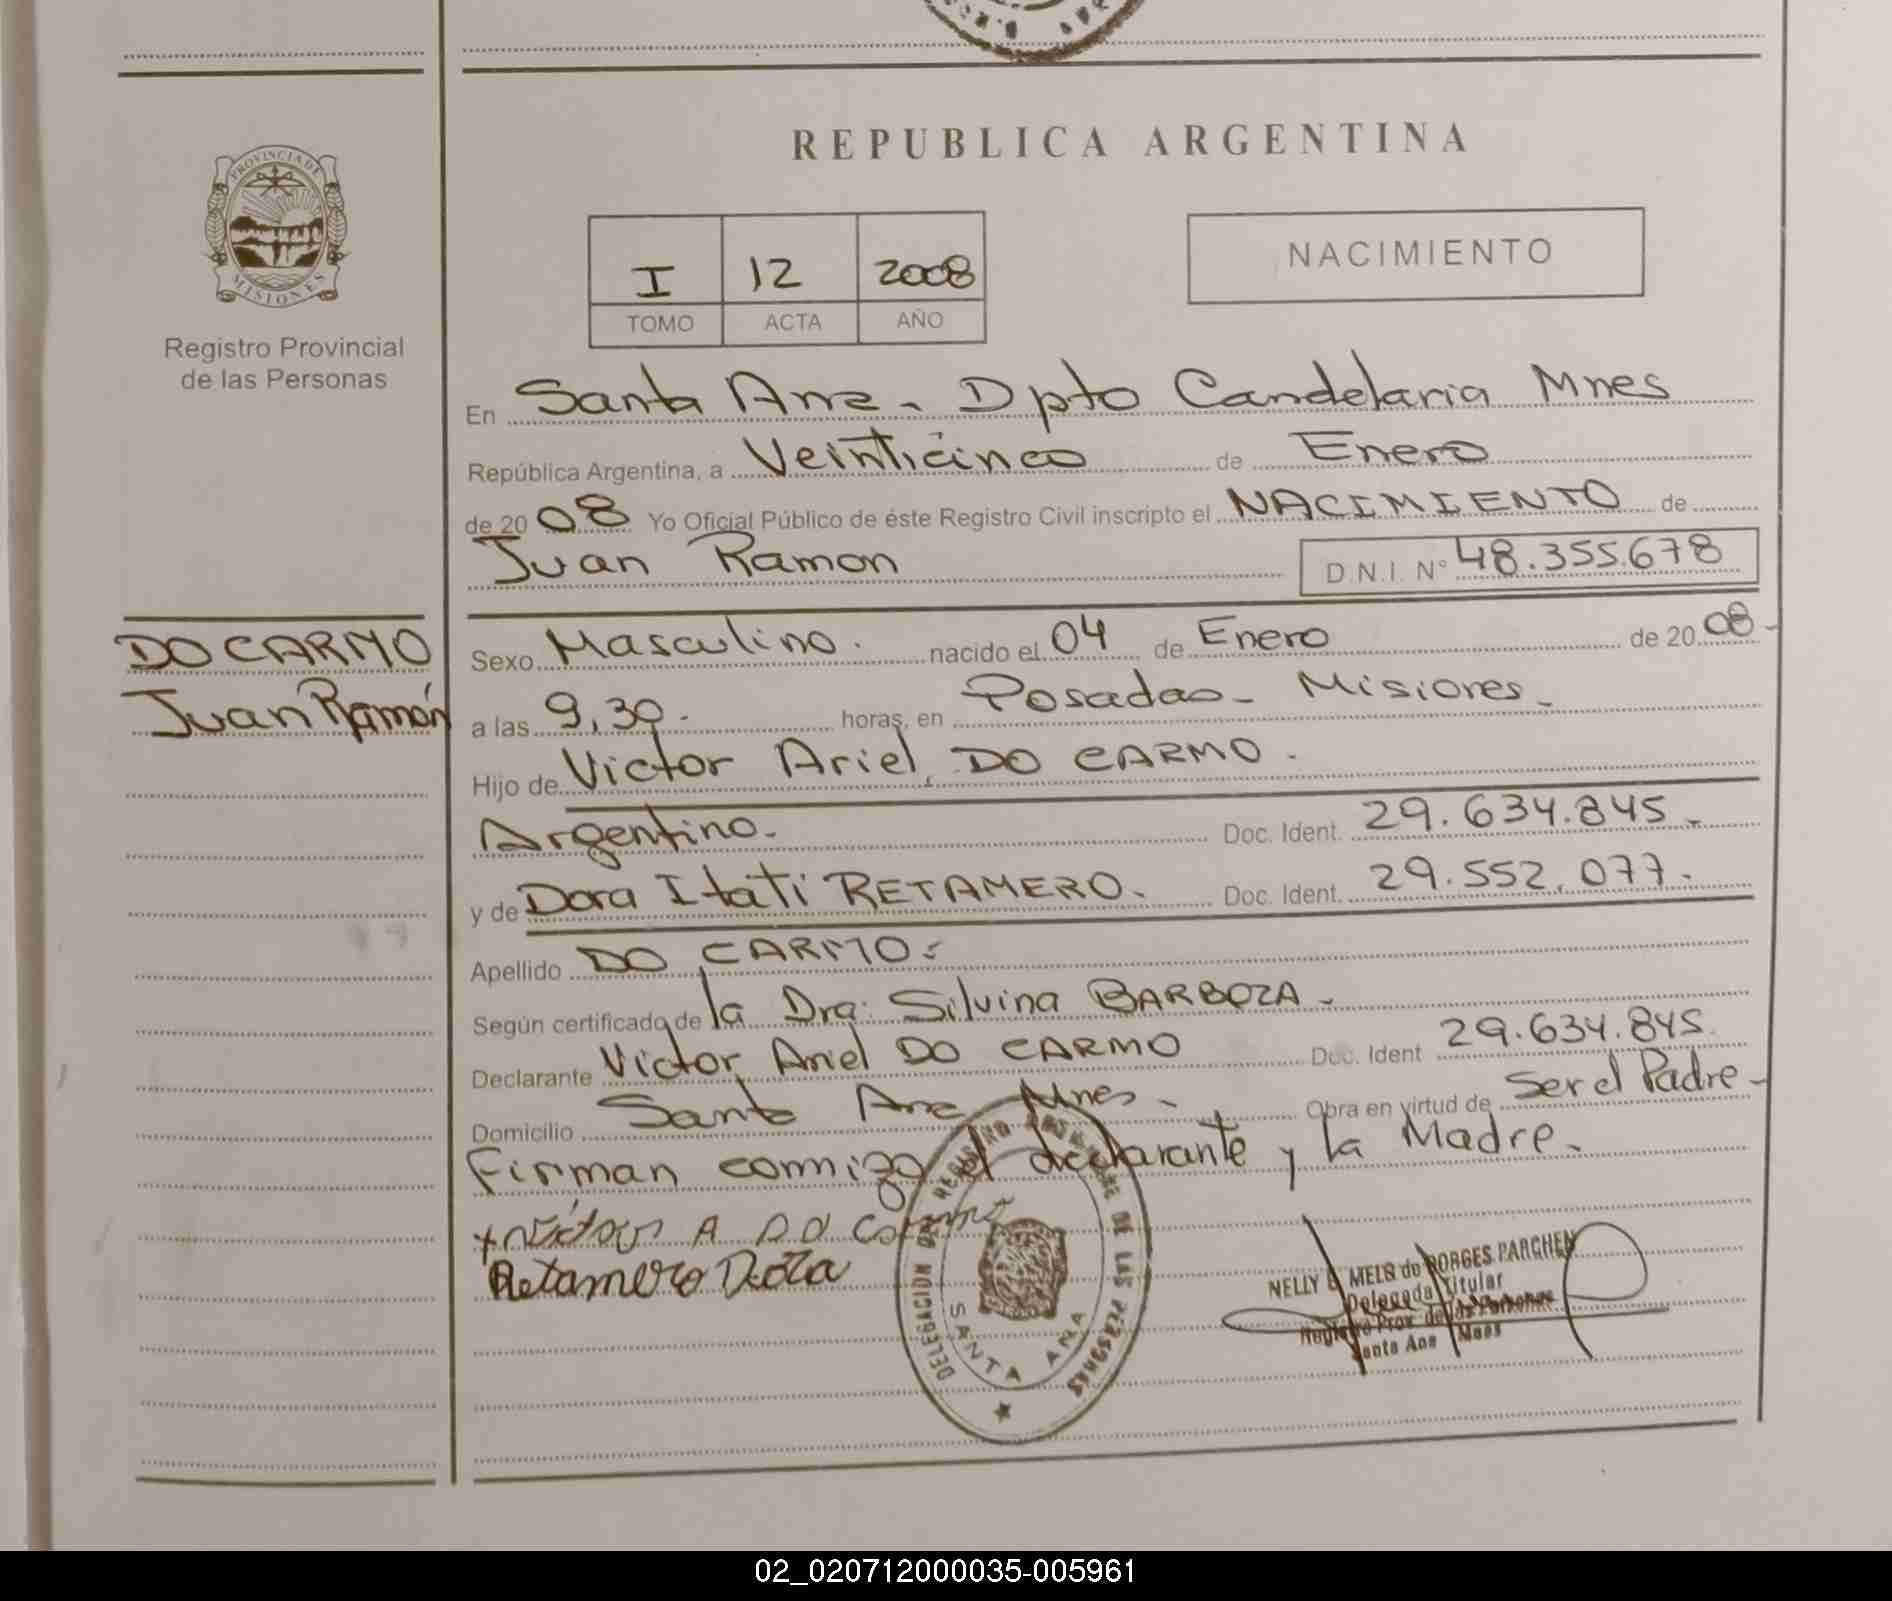 REPUBLICA ARGENTINA
PROVINCIA DE MISIONES
Registro Provincial
de las Personas
I 12 2008
TOMO ACTA AÑO
NACIMIENTO
En Santa Ana - Dpto Candelaria Mnes
República Argentina, a Veinticinco de Enero
de 2008 Yo Oficial Público de éste Registro Civil inscripto el NACIMIENTO de
Juan Ramon D.N.I. N° 48.355.678
DO CARMO
Juan Ramón
Sexo Masculino. nacido el 04 de Enero de 20 08-
a las 9,30. horas, en Posadas - Misiones -
Hijo de Victor Ariel DO CARMO.
Argentino. Doc. Ident. 29.634.845-
y de Dora Itati RETAMERO. Doc. Ident. 29.552.077.
Apellido DO CARMO.
Según certificado de la Dra. Silvina BARBOZA -
Declarante Victor Ariel DO CARMO Doc. Ident 29.634.845
Domicilio Santa Ana Mnes - Obra en virtud de Ser el Padre -
Firman conmigo el declarante y la Madre.
Victor A DO Carmo
Retamero Dora
DELEGACION DEL REGISTRO PROVINCIAL DE LAS PERSONAS
SANTA ANA
NELLY MELS de BORGES PARCHEN
Delegada Titular
Registro Prov. de las Personas
Santa Ana Mnes
02_020712000035-005961